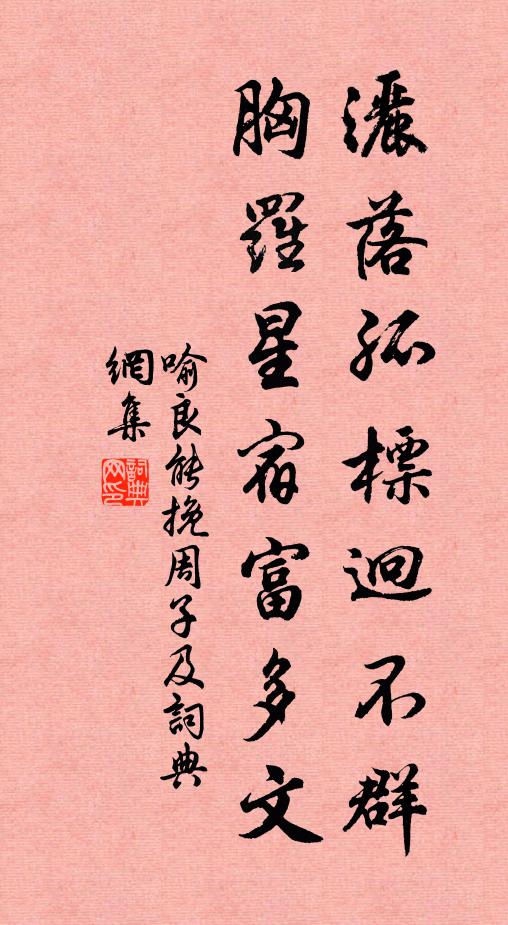 灑落孤標迥不群
胸羅星宿富多文
喻良能挽周子及詞典
網集
詞典
网印